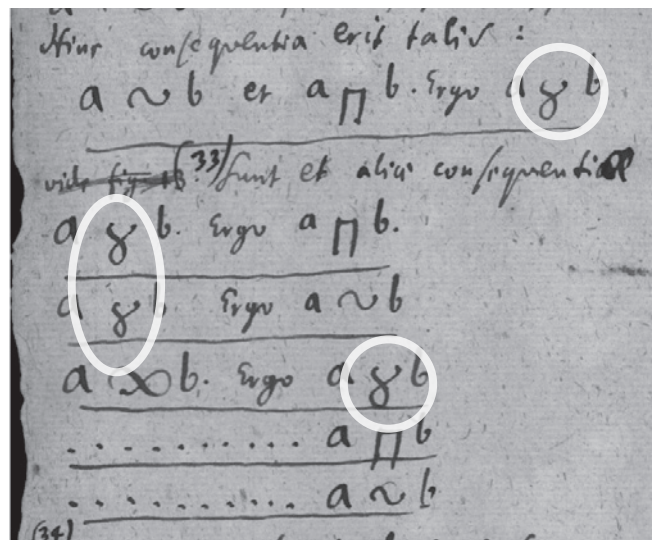 Hinc consequentia erit talis :
a ~ b et a ⊓ b. Ergo a ४ b
vide fig. (33) sunt et aliæ consequentiæ
a ४ b. Ergo a ⊓ b.
a ४ b Ergo a ~ b
a ∞ b. Ergo a ४ b
. . . . . . . . . . a ⊓ b
. . . . . . . . . . a ~ b
(34)